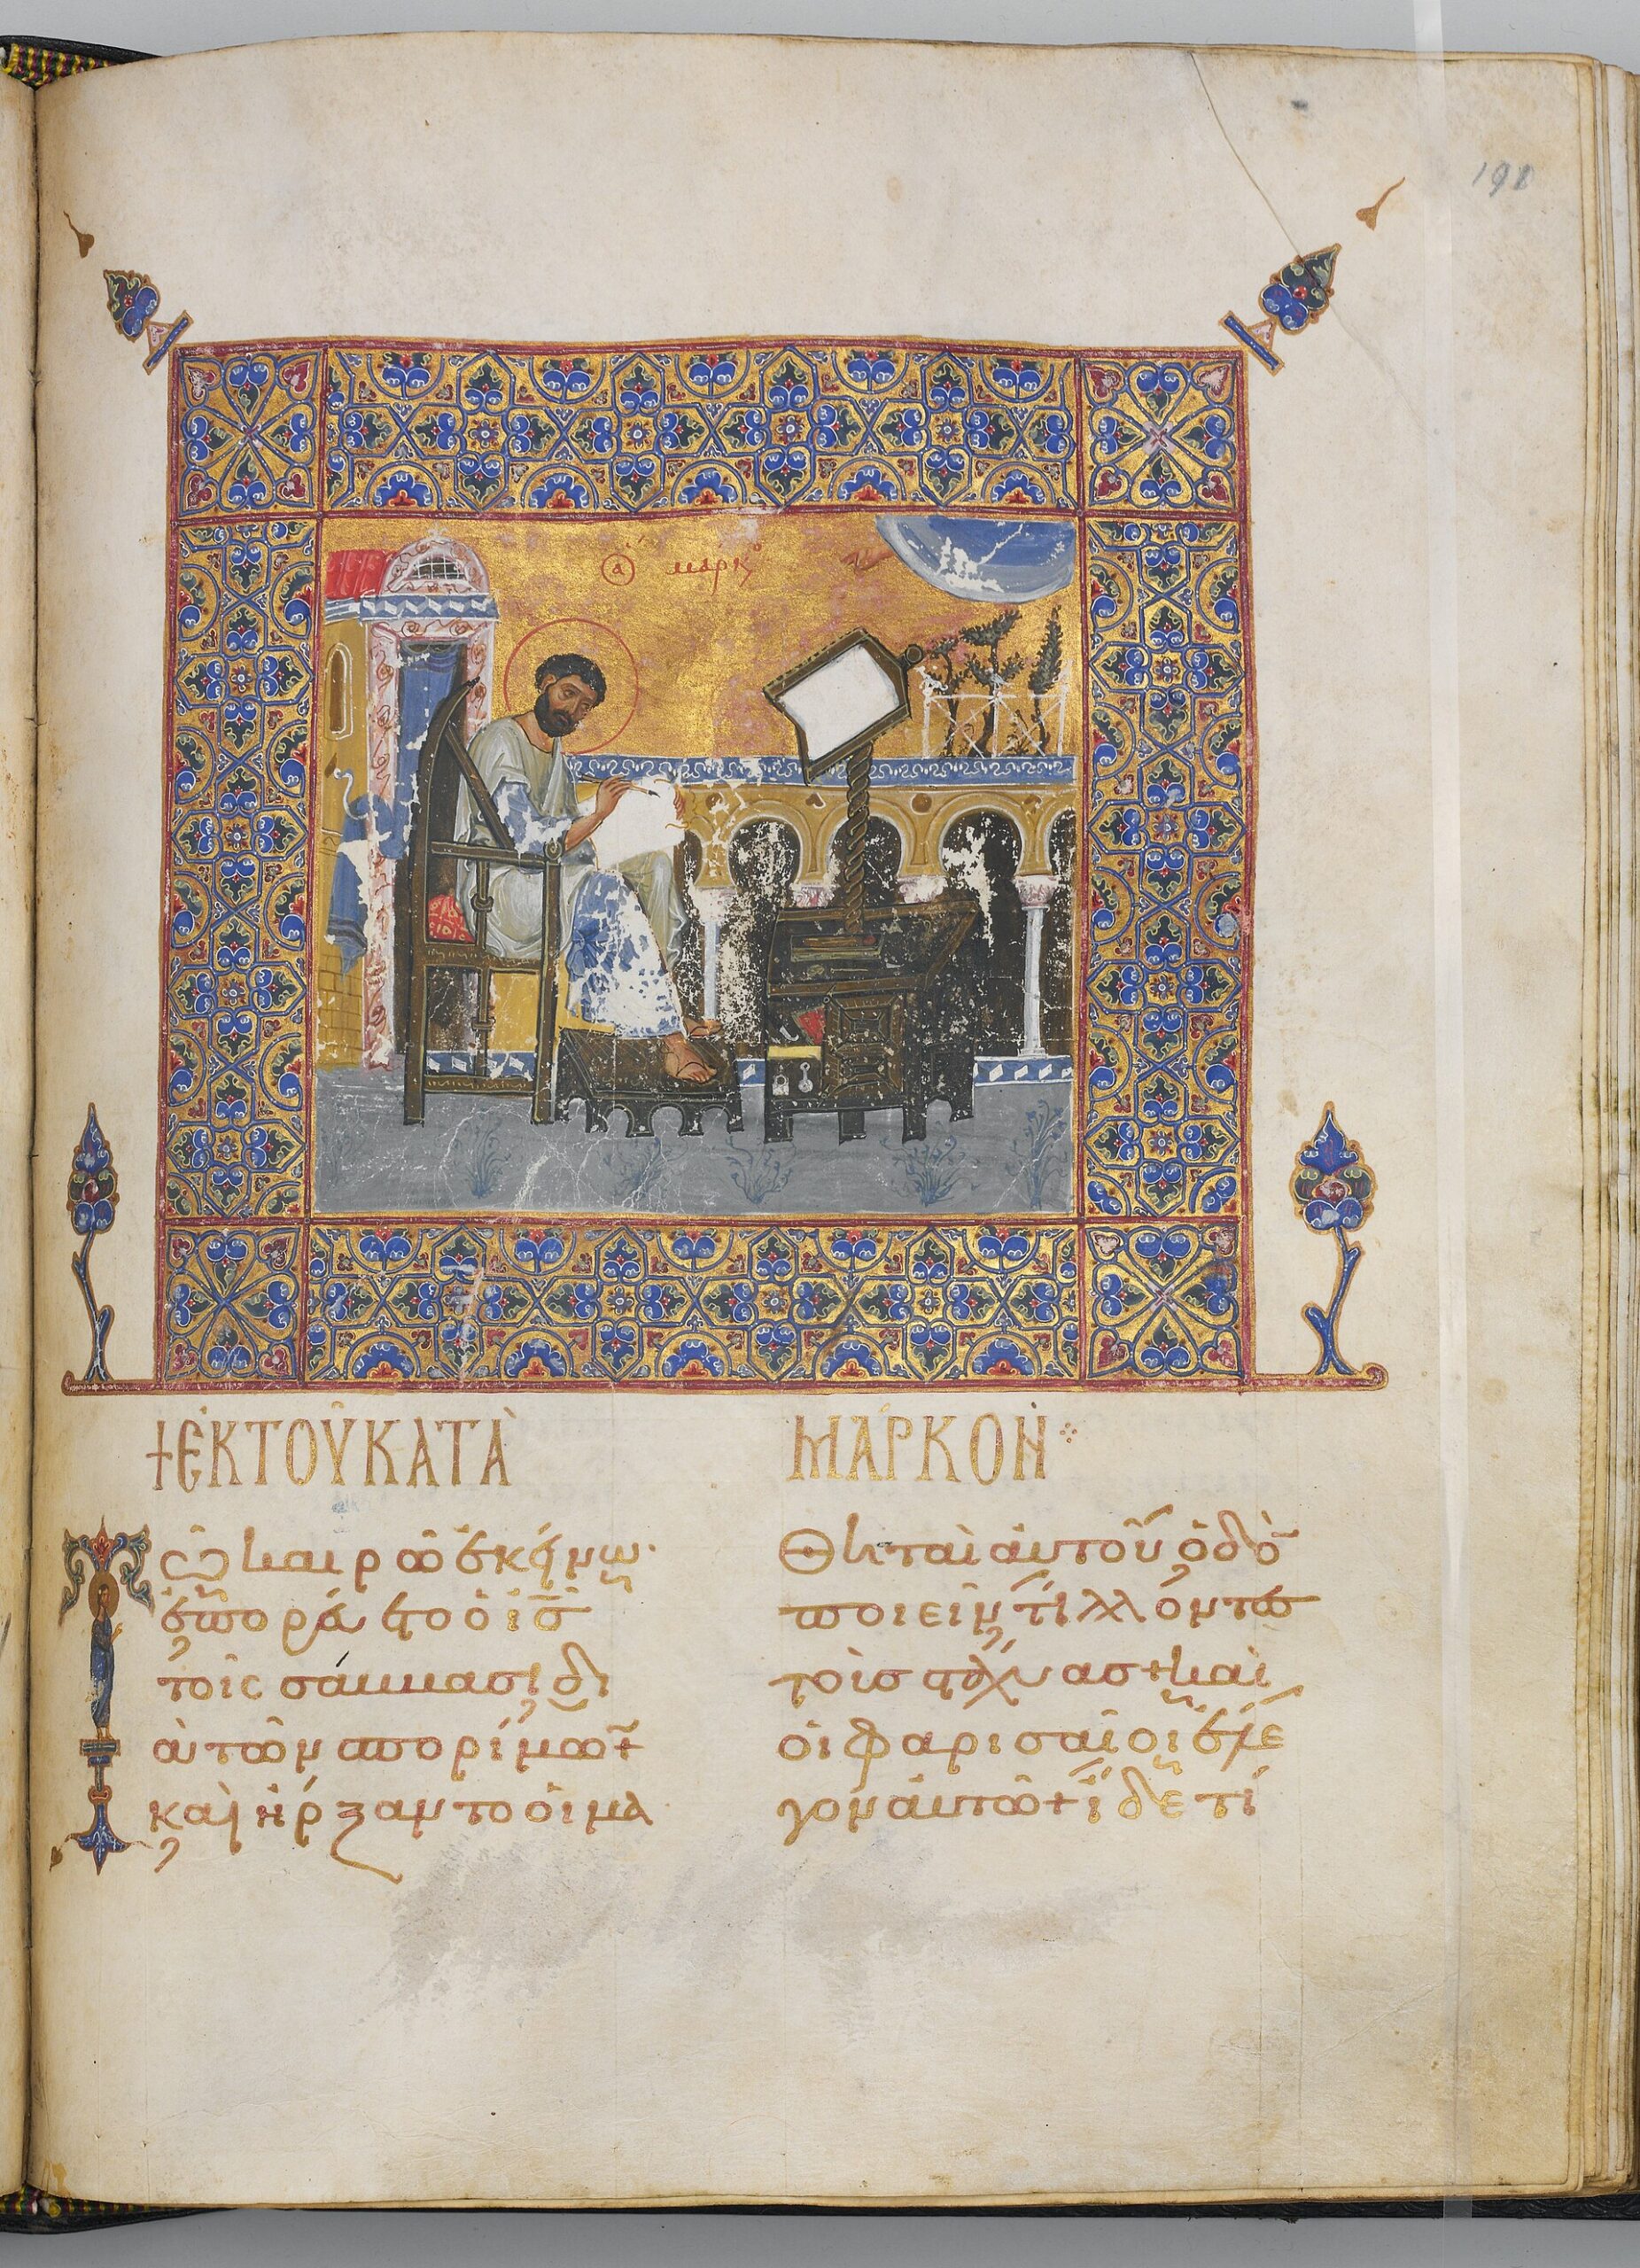 198
ὁ ἅ μάρκο
+ ἘΚ ΤΟΥ͂ ΚΑΤᾺ
ΜΆΡΚΟΝ
Τῶ καιρῶ ἐκείνω·
ἐπορεύετο ὁ ις
τοῖς σάββασι διὰ
τῶν σπορίμων+
καὶ ἤρξαντο οἱ μα
θηταὶ αὐτοῦ ὁδὸν
ποιεῖν τίλλοντες
τοὺς στάχυας+ καὶ
οἱ φαρισαῖοι ἔλε
γον αὐτῶ+ ἴδε τί